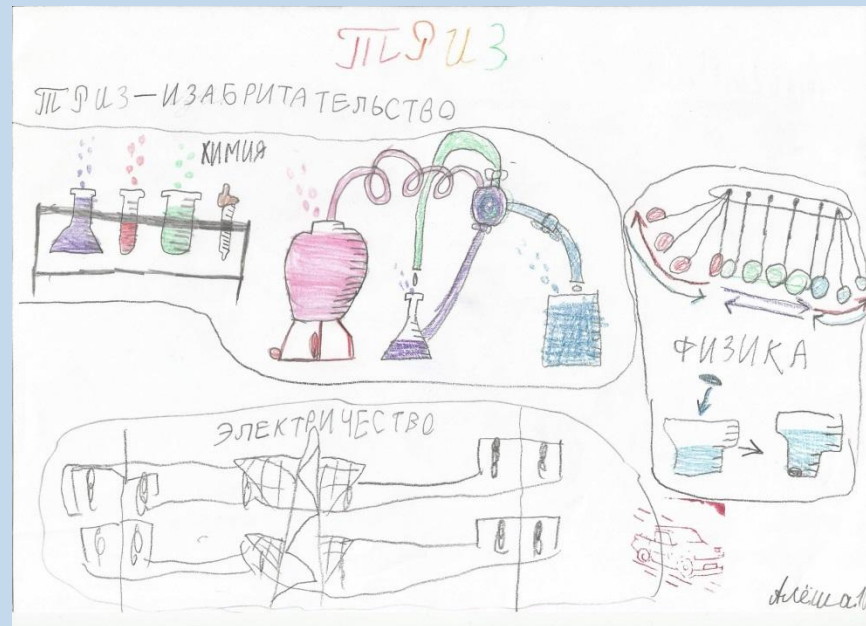 ТРИЗ
ТРИЗ-ИЗАБРИТАТЕЛЬСТВО
ХИМИЯ
ФИЗИКА
ЭЛЕКТРИЧЕСТВО
Алёша